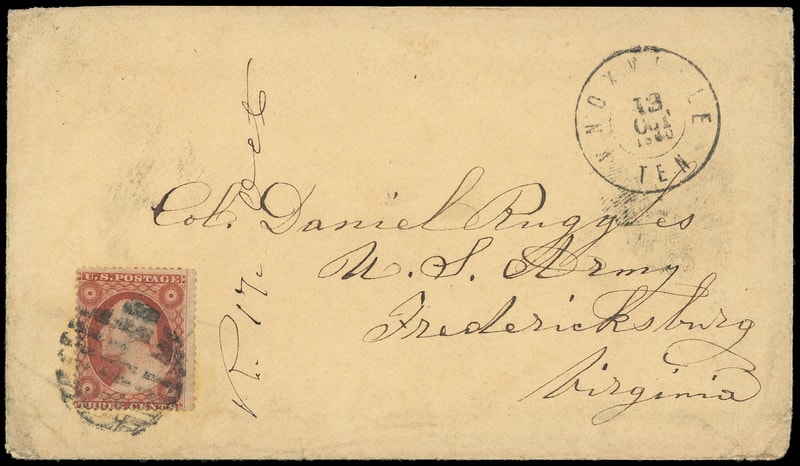 KNOXVILLE
13
OCT
1860
TEN
Col. Daniel Ruggles
U. S. Army
Fredericksburg
Virginia
R. 17 Oct
U.S. POSTAGE
THREE CENTS